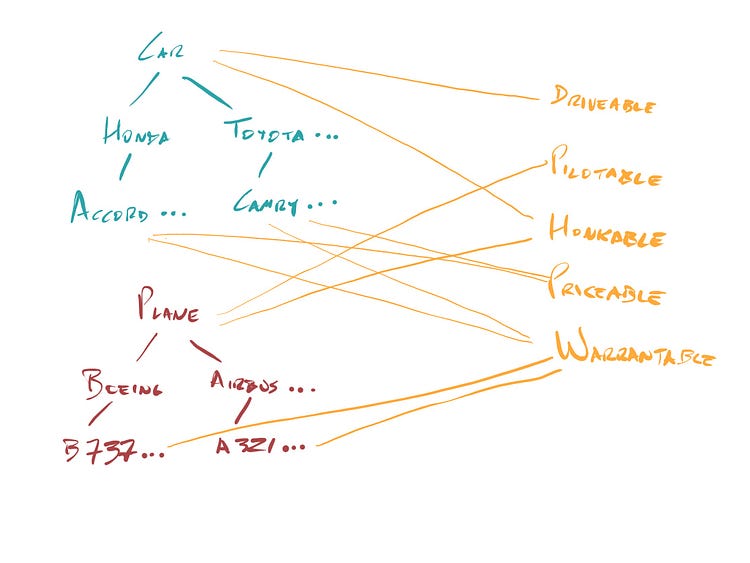 CAR
HONDA TOYOTA ...
ACCORD ... CAMRY ...
PLANE
BOEING AIRBUS ...
B737... A321...
DRIVEABLE
PILOTABLE
HONKABLE
PRICEABLE
WARRANTABLE